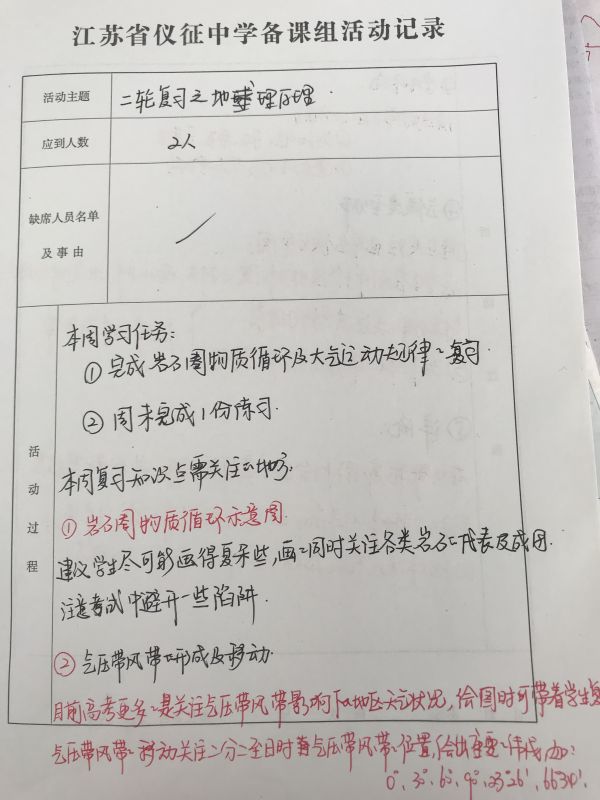 江苏省仪征中学备课组活动记录
活动主题 二轮复习之地理原理
应到人数 2人
缺席人员名单及事由 /
活动过程
本周学习任务:
① 完成岩石圈物质循环及大气运动规律的复习
② 周末完成1份练习.
本周复习知识点需关注的地方:
① 岩石圈物质循环示意图.
建议学生尽可能画得复杂些,画的同时关注各类岩石的代表及成因.
注意考试中避开一些陷阱.
② 气压带风带的形成及移动.
目前高考更多的是关注气压带风带影响下的地区天气状况,绘图时可带着学生
气压带风带的移动关注二分二至日时气压带风带的位置,给出重要的
0°, 30°, 60°, 90°, 23°26′, 66°34′.